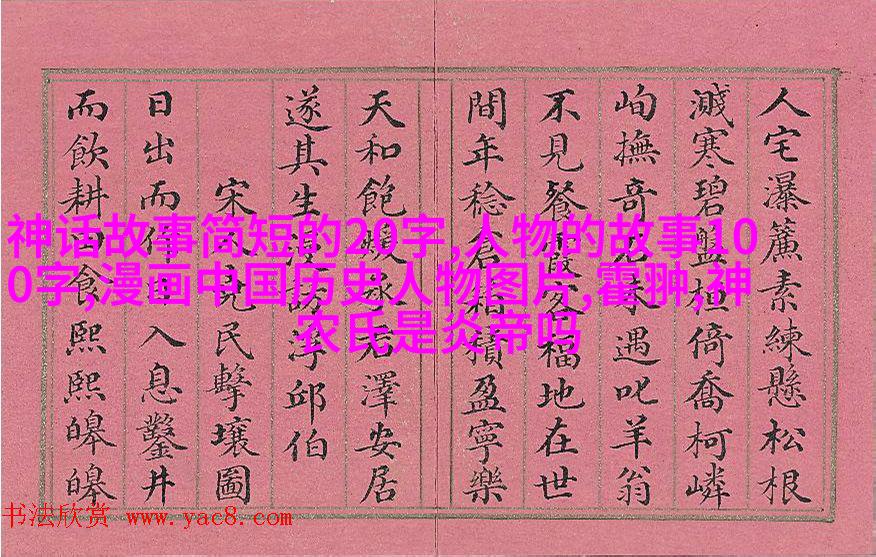 人宅瀑簾素練懸松根
濺寒碧盤桓倚喬柯嶙
峋撫奇遇叱羊翁
不見餐霞客福地在世
間年稔倉箱積盈寧樂
天和飽煖永澤安居
遂其生訪浮邱伯
宋人民擊壤圖
日出而作日入息鑿井
而飲耕田食熙熙皞皞
神话故事简短的20字,人物的故事10
0字,漫画中国历史人物图片,霍翀,神
农氏是炎帝吗
书法欣赏 www.yac8.com